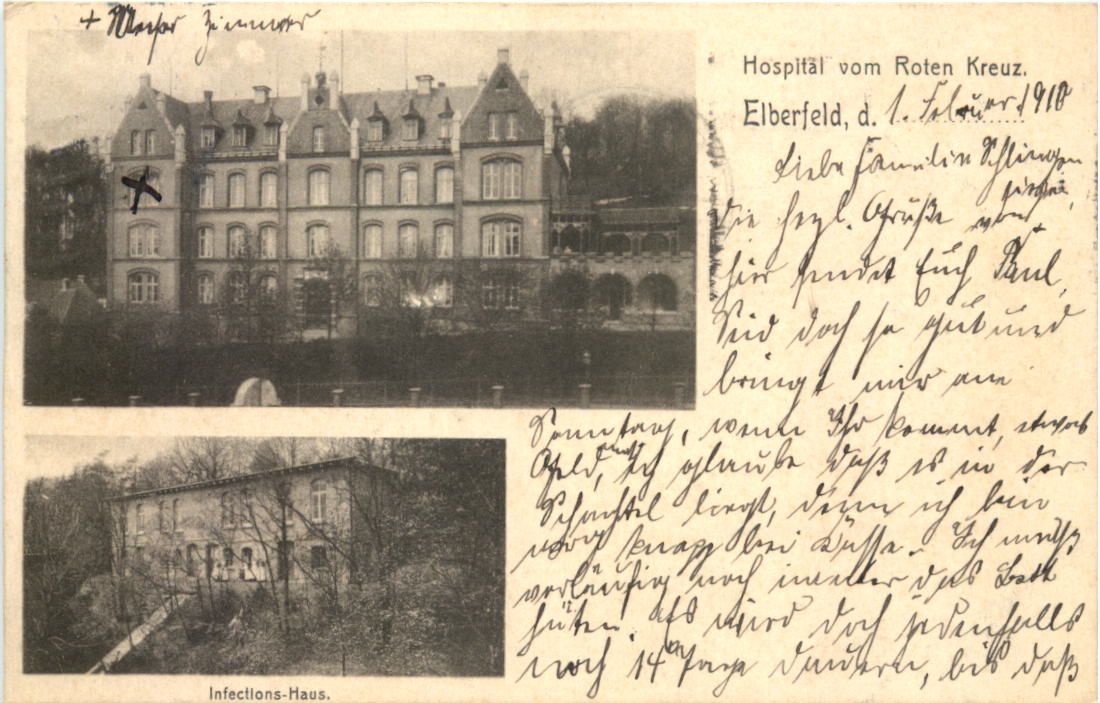 + Zimmer
Hospital vom Roten Kreuz.
Elberfeld, d. 1. Februar 1910
Liebe Familie Schlingen
Die hrzl. Grüße von
hier sendet Euch Paul,
Seid doch so gut und
bringt mir am
Sonntag, wenn Ihr kommt, etwas
Geld mit, ich glaube daß es in der
Schachtel liegt, denn ich bin
knapp bei Kasse. Ich muß
vorläufig noch immer das Bett
hüten. Es wird doch jedenfalls
noch 14 Tage dauern, bis daß
Infections-Haus.